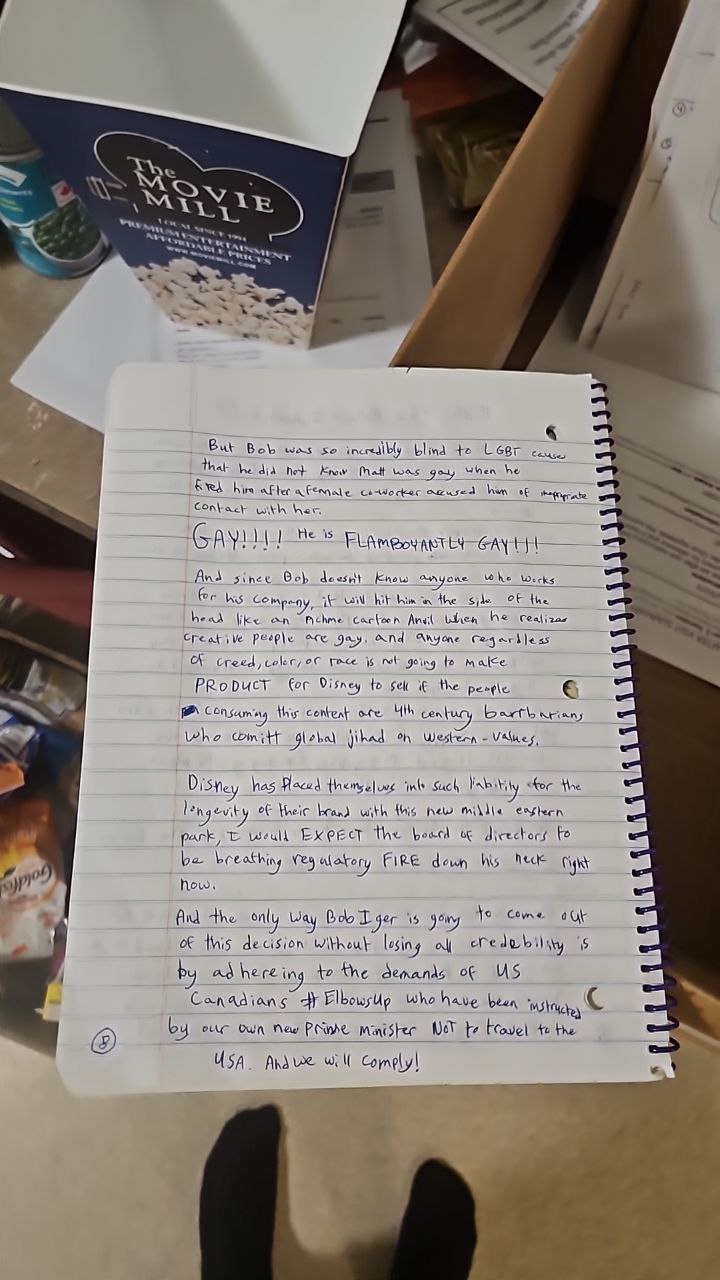 The
MOVIE
MILL
LOCAL SINCE 1994
PREMIUM ENTERTAINMENT
AFFORDABLE PRICES
WWW.MOVIEMILL.COM
But Bob was so incredibly blind to LGBT cause
that he did not know Matt was gay when he
fired him after a female co-worker accused him of inappropriate
contact with her.
GAY!!!! He is FLAMBOYANTLY GAY!!!
And since Bob doesn't know anyone who works
for his company, it will hit him in the side of the
head like an Achme cartoon Anvil when he realizes
creative people are gay, and anyone regardless
of creed, color, or race is not going to make
PRODUCT for Disney to sell if the people
consuming this content are 4th century barrbarians
who comitt global jihad on western-values.
Disney has placed themselves into such liability for the
longevity of their brand with this new middle eastern
park, I would EXPECT the board of directors to
be breathing regulatory FIRE down his neck right
now.
And the only way Bob Iger is going to come out
of this decision without losing all credebility is
by adhereing to the demands of US
Canadians #ElbowsUp who have been instructed
by our own new Prime minister NOT to travel to the
8
USA. And we will comply!
Goldfish